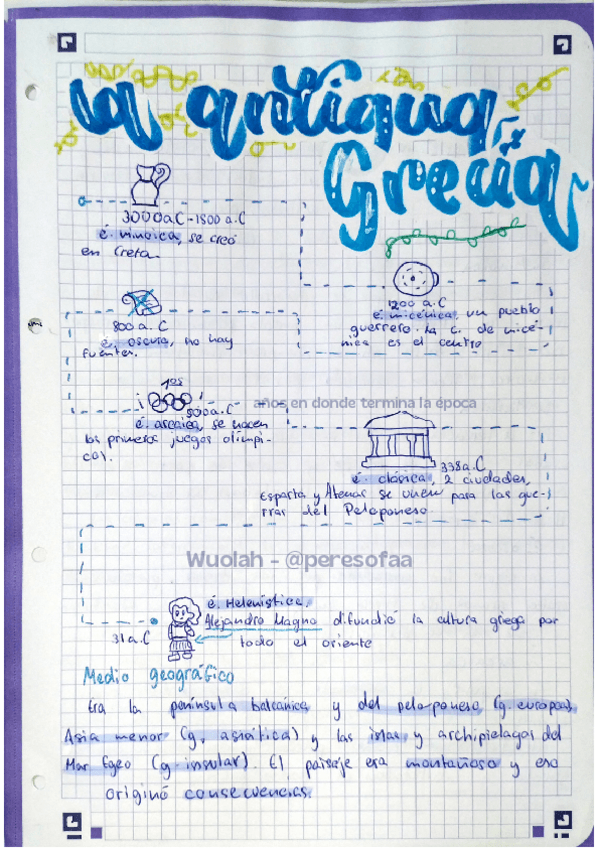 la antigua
Grecia
3000a.C-1500 a.C
é. minoica, se creó
en Creta.
1200 a.C
é. micénica, un pueblo
guerrero. la c. de micé-
nica es el centro
800 a.C
é. oscura, no hay
fuentes.
1os
500a.C
años en donde termina la época
é. arcaica, se hacen
los primeros juegos olímpi-
cos.
338a.C
é. clásica, 2 ciudades,
Esparta y Atenas se unen para las gue-
rras del Peloponeso
Wuolah - @peresofaa
é. Helenística,
Alejandro Magno difundió la cultura griega por
31a.C todo el oriente
Medio geográfico
Era la península balcánica y del peloponeso (g. europea),
Asia menor (g. asiática) y las islas y archipielagos del
Mar Egeo (g. insular). El paisaje era montañoso y eso
originó consecuencias.